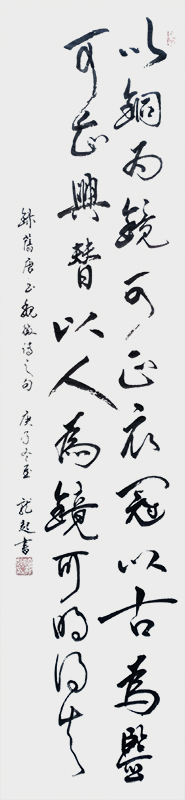 以銅为鏡可正衣冠以古為鑒
可知興替以人為鏡可明得失
錄舊唐书魏徵诗之句 庚子冬至 龍起書